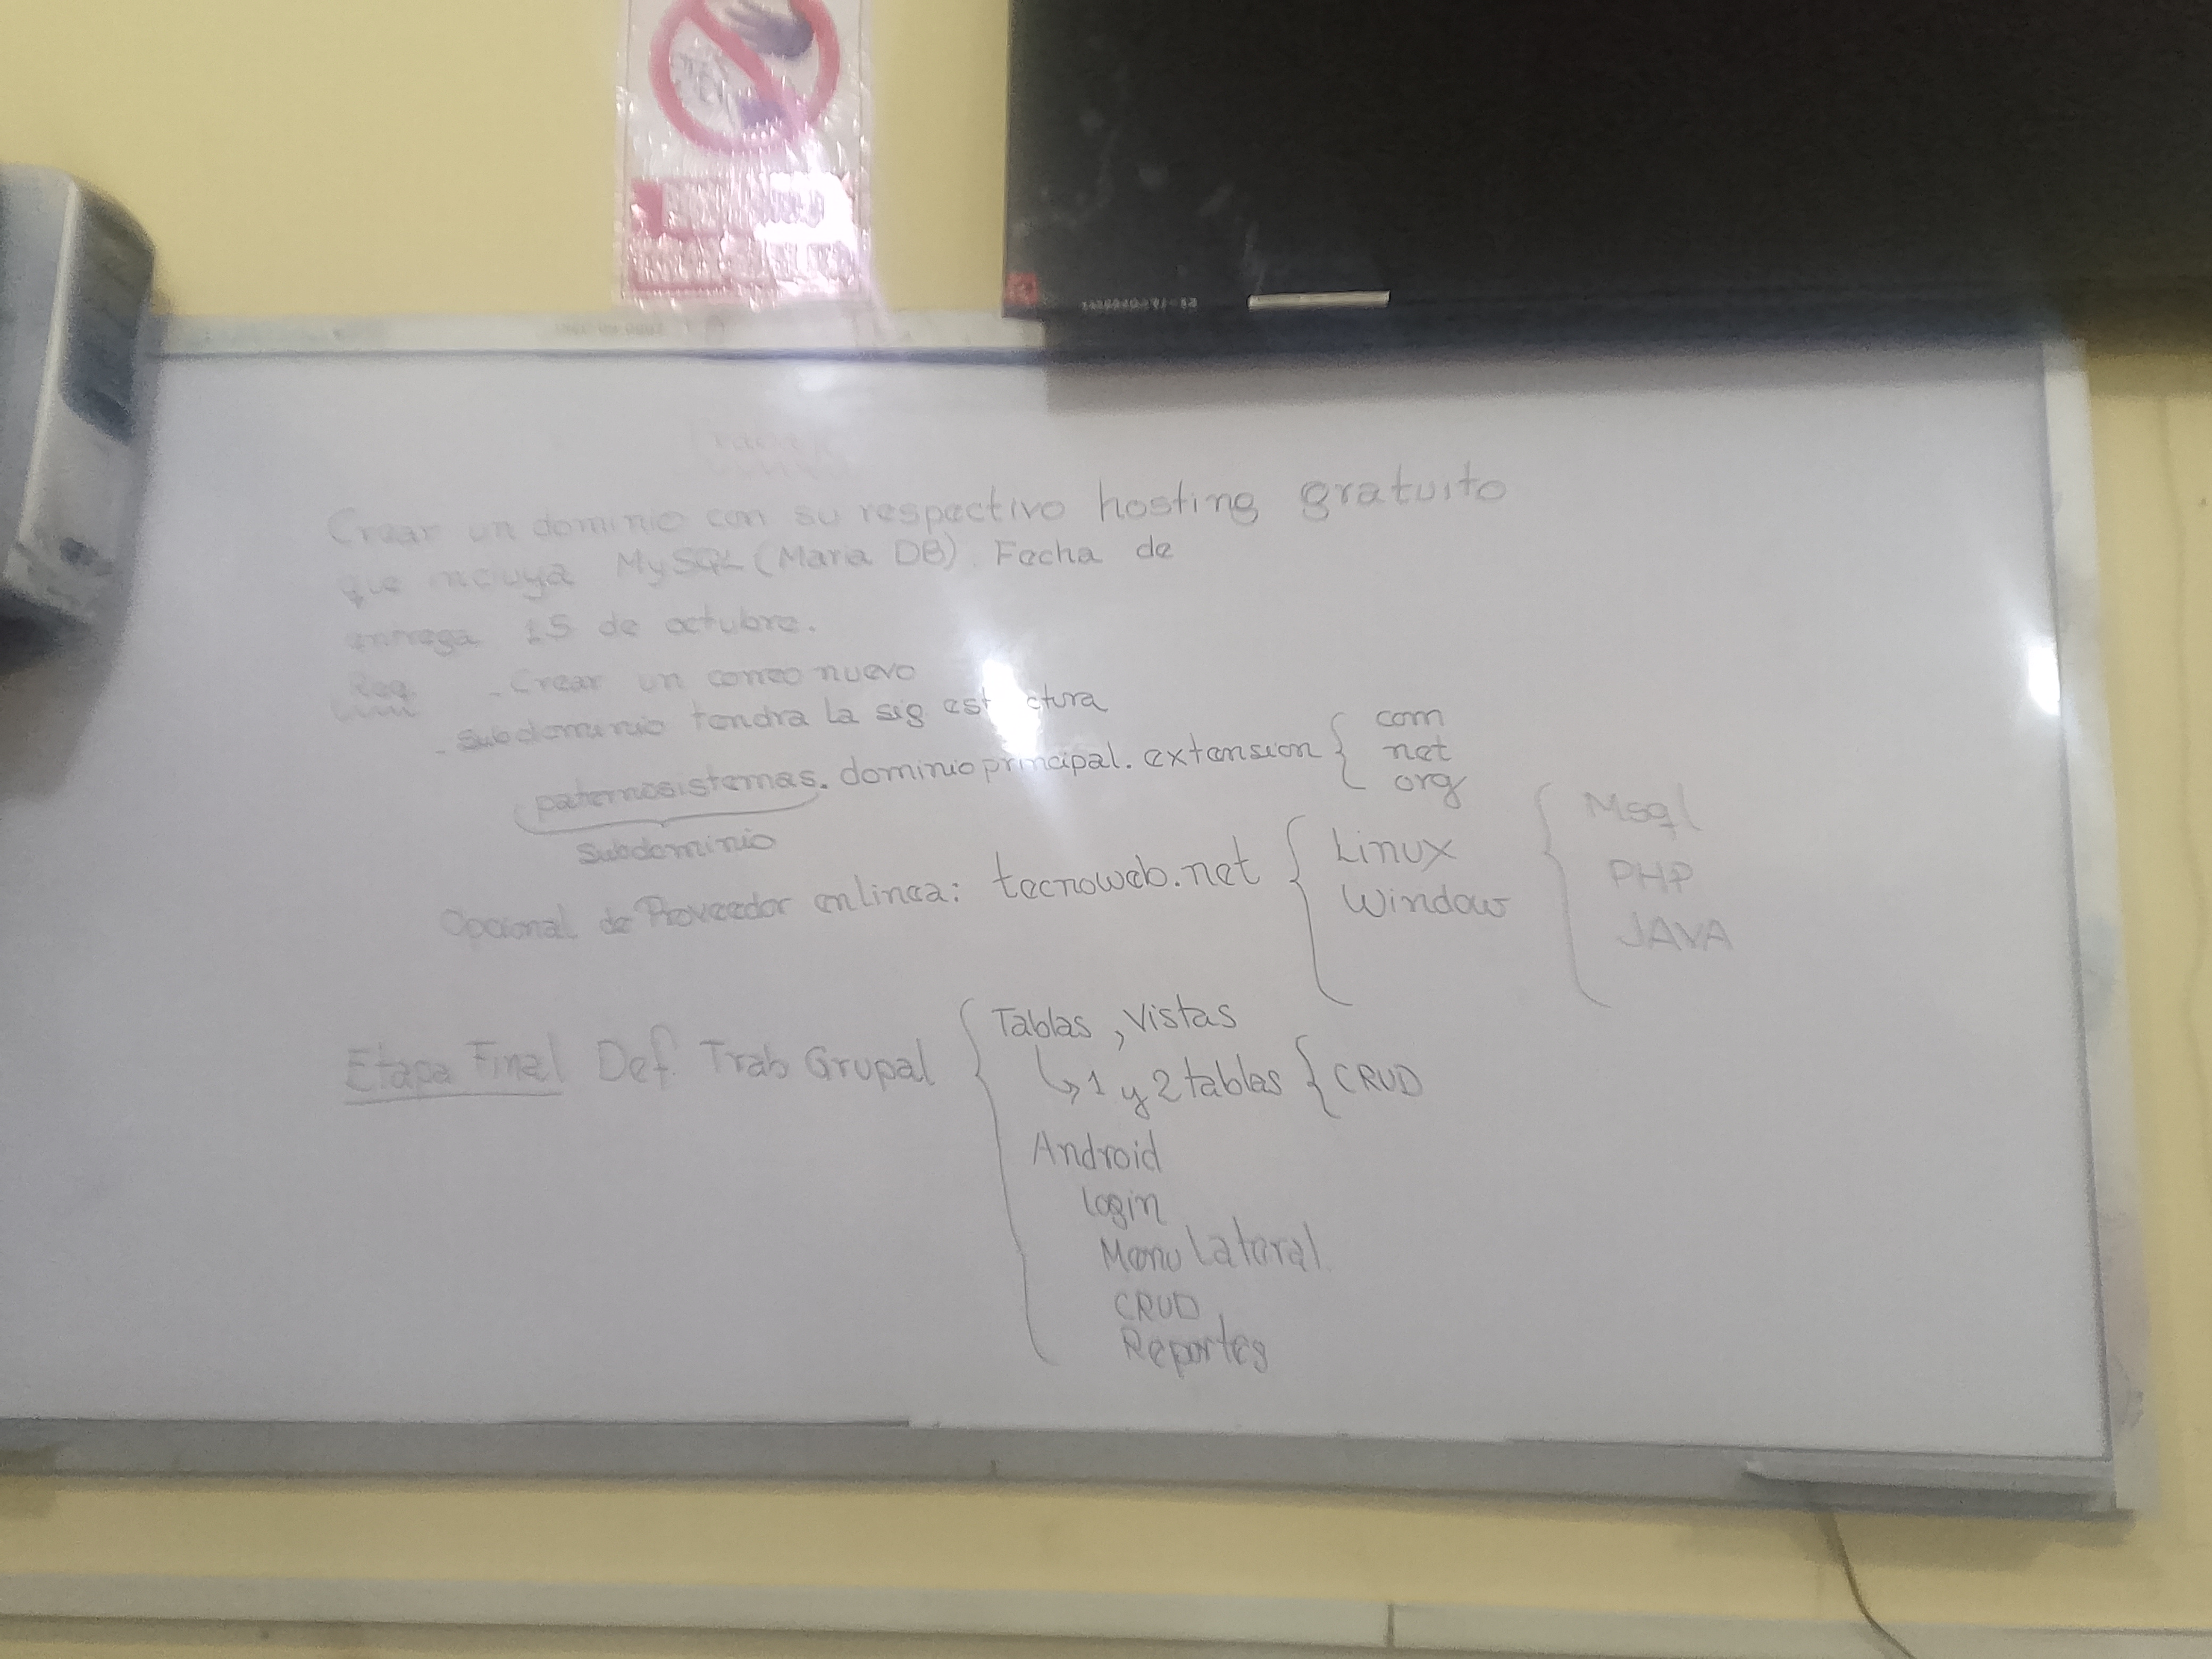 Crear un dominio con su respectivo hosting gratuito
que incluya MySQL (Maria DB). Fecha de
entrega 15 de octubre.
Req. - Crear un correo nuevo
- Subdominio tendra la sig est ctura
paternosistemas. dominio principal. extension { com
net
org
Subdominio
Opcional de Proveedor en linea: tecnoweb.net { Linux { Msql
Window PHP
JAVA
Etapa Final Def. Trab Grupal { Tablas, Vistas
↳ 1 y 2 tablas { CRUD
Android
login
Menu Lateral
CRUD
Reportes